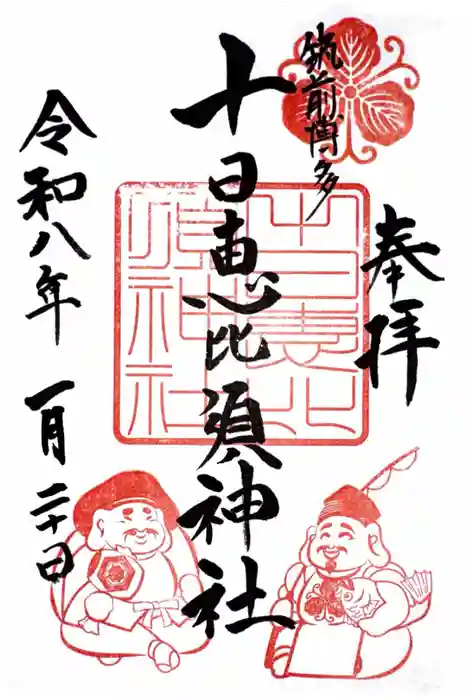 筑前博多
奉拝
十日恵比須神社
十日恵比須神社
令和八年 一月二十日